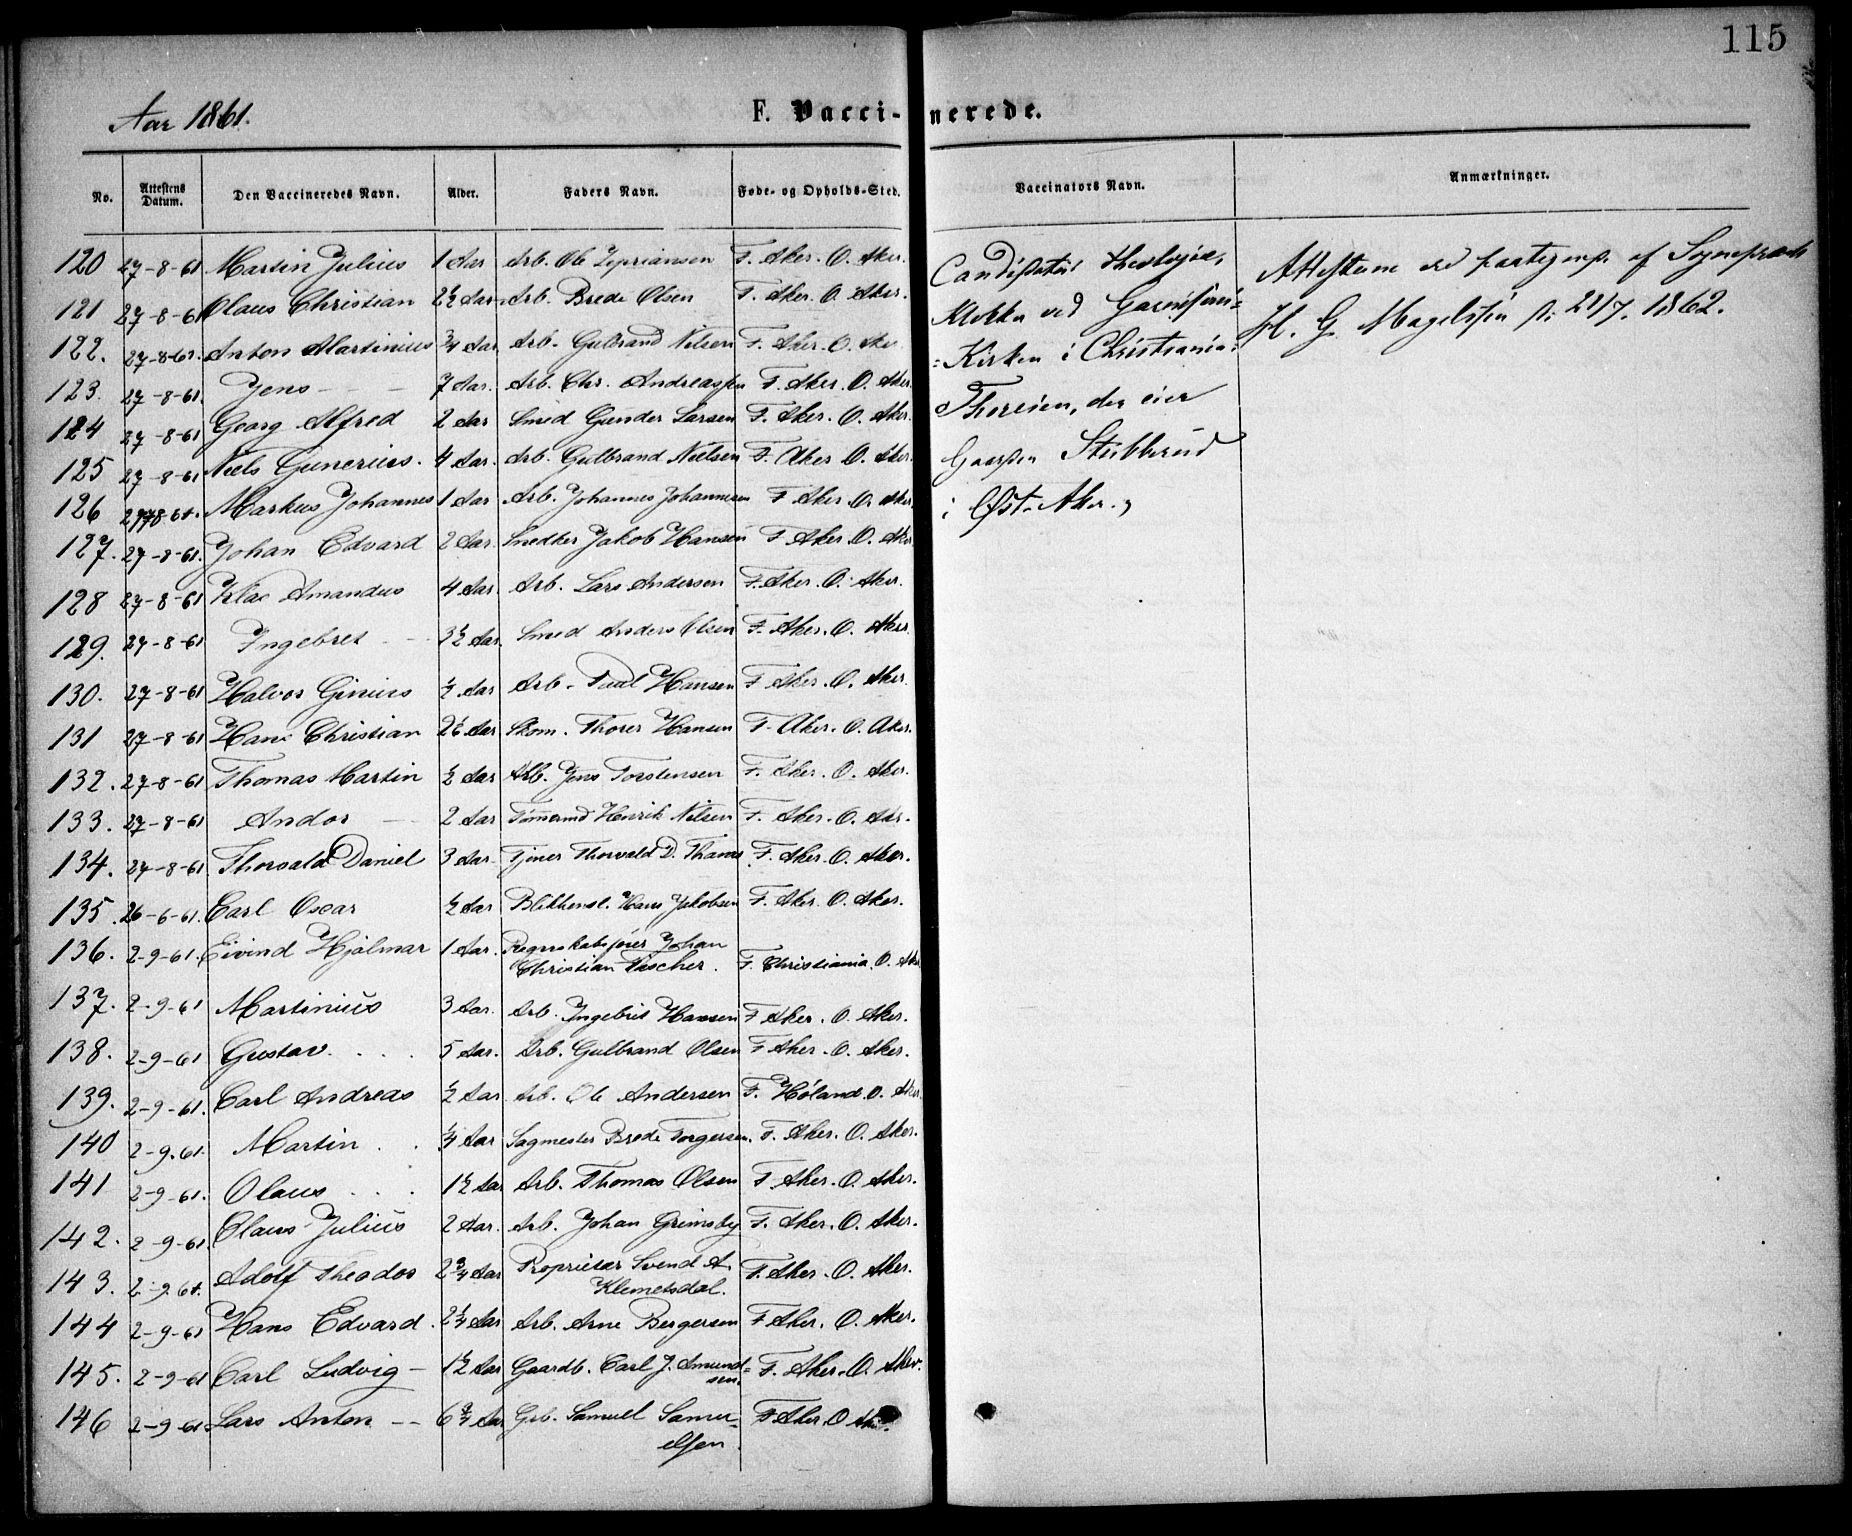 115
Aar 1861.
F. Vaccinerede.
No. Attestens Datum. Den Vaccineredes Navn. Alder. Faders Navn. Føde- og Opholds-Sted. Vaccinators Navn. Anmærkninger.
120 27-8-61 Martin Julius 1 Aar Arb. Ole Zepriansen F. Aker. O. Aker.
121 27-8-61 Olaus Christian 2½ Aar Arb. Brede Olsen F. Aker. O. Aker.
122. 27-8-61. Anton Martinius ¾ Aar Arb. Gulbrand Nilsen F. Aker. O. Aker
123. 27-8-61. Jens 7 Aar. Arb. Chr. Andreassen F. Aker. O. Aker
124 27-8-61 Georg Alfred 2 Aar Smed Gunder Larsen F. Aker. O. Aker.
125 27-8-61 Niels Gunerius. 4 Aar. Arb. Gulbrand Nielsen F. Aker O. Aker.
126 27-8-61. Markus Johannes 1 Aar Arb. Johannes Johannesen F Aker O. Aker
127. 27-8-61. Johan Edvard 2 Aar. Snedker Jakob Hansen F Aker. O. Aker
128 27-8-61 Klaus Amandus 4 Aar. Arb. Lars Andersen F. Aker. O. Aker.
129. 27-8-61 Ingebret 3½ Aar. Smed Anders Olsen F. Aker. O. Aker
130. 27-8-61 Halvor Ginius ½ Aar Arb. Paul Hansen F Aker. O. Aker.
131 27-8-61 Hans Christian 2½ Aar Skom. Thorer Hansen F. Aker. O. Aker.
132. 27-8-61 Thomas Martin ½ Aar Arb. Jens Torstensen F. Aker. O. Aker.
133. 27-8-61 Andor 2 Aar Tømmermd Henrik Nilsen F. Aker. O. Aker.
134. 27-8-61 Thorvald Daniel 3 Aar Tjener Thorvald D. F. Aker. O. Aker.
135. 26-6-61. Carl Oscar ½ Aar Blikkensl. Hans Jakobsen F. Aker. O. Aker.
136. 2-9-61. Eivind Hjalmar 1 Aar. Regnskabsfører Johan
Christian Fischer. F. Christiania. O. Aker
137. 2-9-61 Martinius 3 Aar. Arb. Ingebret Hansen F Aker. O. Aker.
138. 2-9-61 Gustav. . . . 5 Aar. Arb. Gulbrand Olsen F Aker. O. Aker.
139. 2-9-61. Carl Andreas ½ Aar Arb. Ole Andersen F. Høland. O. Aker
140 2-9.61. Martin . . ¼ Aar Sagmester Brede Torgersen. F. Aker. O. Aker.
141 2-9-61. Olaus . . . 1½ Aar Arb. Thomas Olsen F. Aker. O. Aker.
142. 2-9-61. Olaus Julius 2 Aar. Arb. Johan Grimsby F. Aker. O. Aker.
143. 2-9-61. Adolf Theodor 2¾ Aar Proprietær Svend A.
Klemetsdal. F. Aker. O. Aker.
144 2-9-61 Hans Edvard. 2¼ Aar Arb. Arne Bergersen F Aker. O. Aker.
145. 2-9-61 Carl Ludvig 1½ Aar Gaardb. Carl J. Amund=
sen. F. Aker. O. Aker.
146 2-9-61 Lars Anton 6¾ Aar Grb. Samuel Samu-
elsen. F Aker. O
Candidatus theologiæ,
Klokker ved Garnisons=
=Kirken i Christiania:
der eier
Gaarden Stubberud
i Øst-Aker.
Attesterne ere af Sognepræst
H. G. Magelssen d. 21/7. 1862.